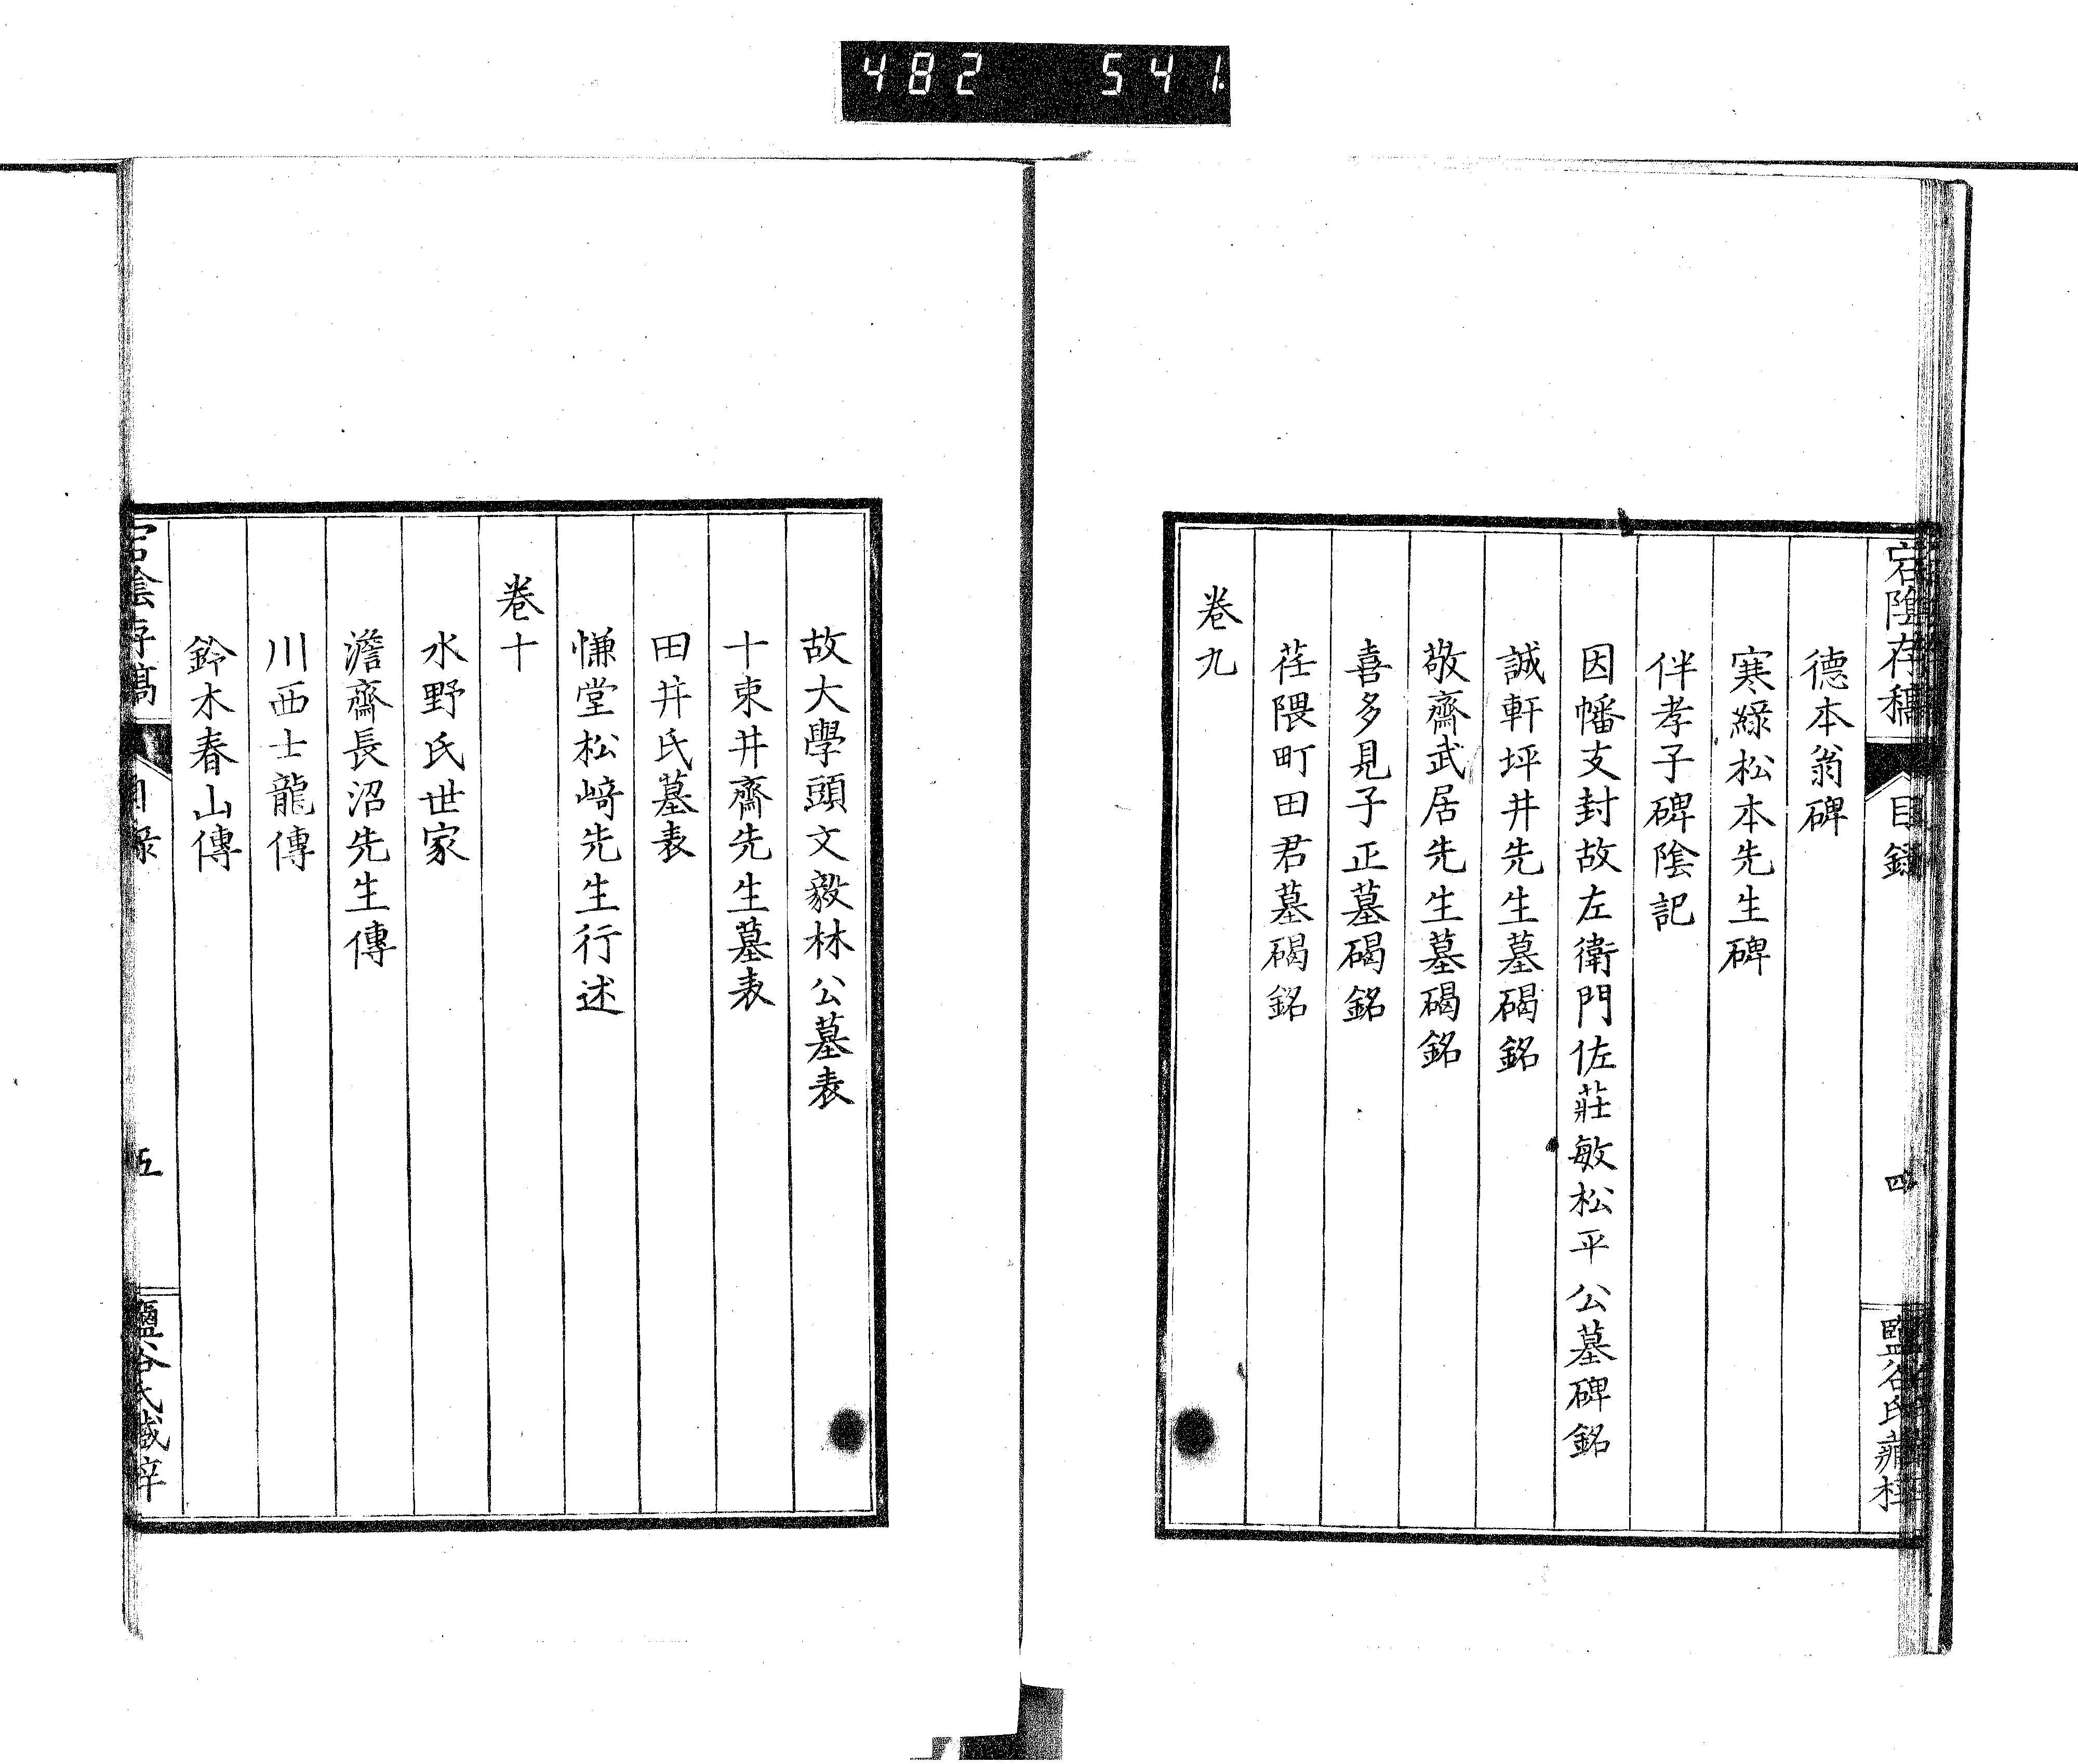 482 541
宕陰存稿 目録 四 鹽谷氏藏梓
德本翁碑
寒綠松本先生碑
伴孝子碑陰記
因幡支封故左衛門佐莊敏松平公墓碑銘
誠軒坪井先生墓碣銘
敬齋武居先生墓碣銘
喜多見子正墓碣銘
荏隈町田君墓碣銘
卷九
故大學頭文毅林公墓表
十束井齋先生墓表
田井氏墓表
慊堂松﨑先生行述
卷十
水野氏世家
澹齋長沼先生傳
川西士龍傳
鈴木春山傳
宕陰存稿 目録 五 鹽谷氏藏梓